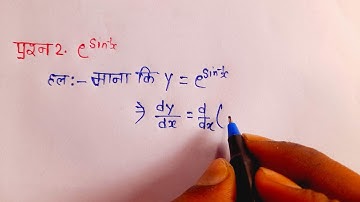 प्रश्न 2. e^sin⁻¹x
हल:- माना कि y = e^sin⁻¹x
⇒ dy/dx = d/dx (